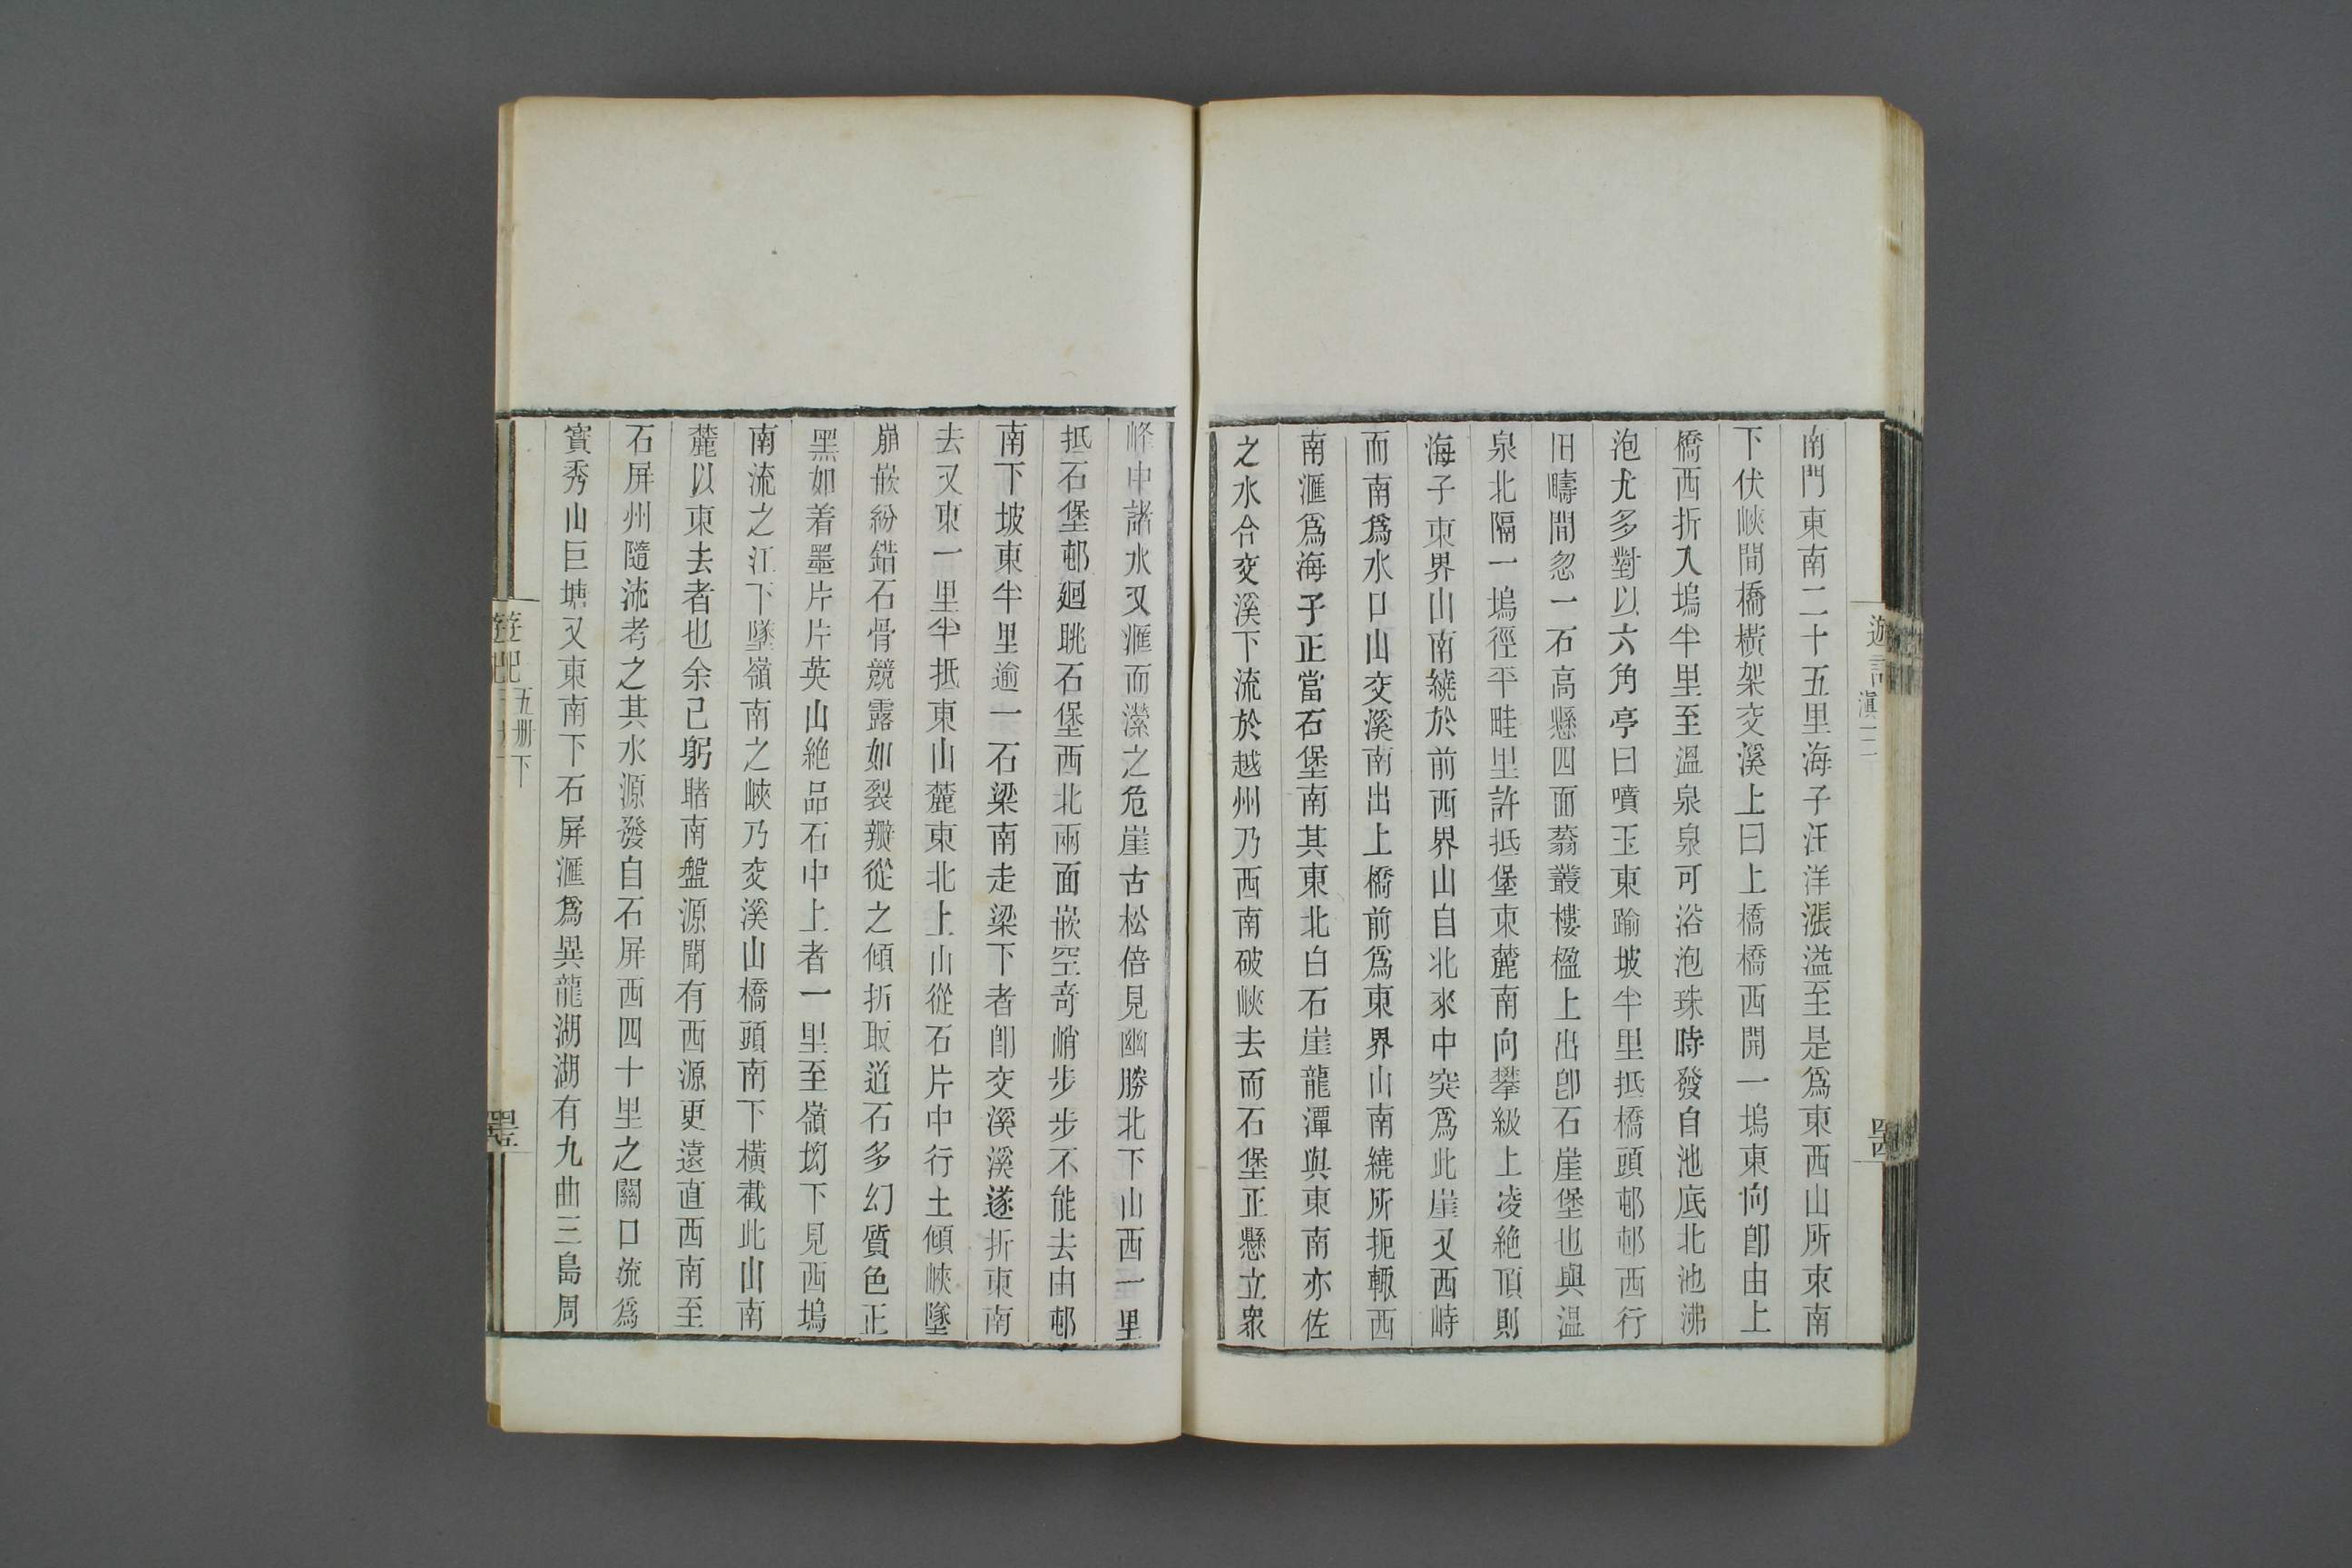 遊記 滇二
南門東南二十五里海子汪洋漲溢至是爲東西山所束南
下伏峽間橋橫架交溪上曰上橋橋西開一塢東向卽由上
橋西折入塢半里至溫泉泉可浴泡珠時發自池底北池沸
泡尤多對以六角亭曰噴玉東踰坡半里抵橋頭邨邨西行
旧疇間忽一石高懸四面蓊叢樓楹上出卽石崖堡也與温
泉北隔一塢徑平畦里許抵堡東麓南向攀級上凌絶頂則
海子東界山南繞於前西界山自北來中突爲此崖又西峙
而南爲水口山交溪南出上橋前爲東界山南繞所扼輙西
南滙爲海子正當石堡南其東北白石崖龍潭與東南亦佐
之水合交溪下流於越州乃西南破峽去而石堡正懸立衆
峰中諸水又滙而瀠之危崖古松倍見幽勝北下山西一里
抵石堡邨廻眺石堡西北兩面嵌空奇峭步步不能去由邨
南下坡東半里逾一石梁南走梁下者卽交溪溪遂折東南
去又東一里半抵東山麓東北上山從石片中行土傾峽墜
崩嵌紛錯石骨競露如裂瓣從之傾折取道石多幻質色正
黑如着墨片片英山絶品石中上者一里至嶺坳下見西塢
南流之江下墜嶺南之峽乃交溪山橋頭南下橫截此山南
麓以東去者也余已躬睹南盤源聞有西源更遠直西南至
石屏州隨流考之其水源發自石屏西四十里之關口流爲
寳秀山巨塘又東南下石屏滙爲異龍湖湖有九曲三島周
遊記 五册下